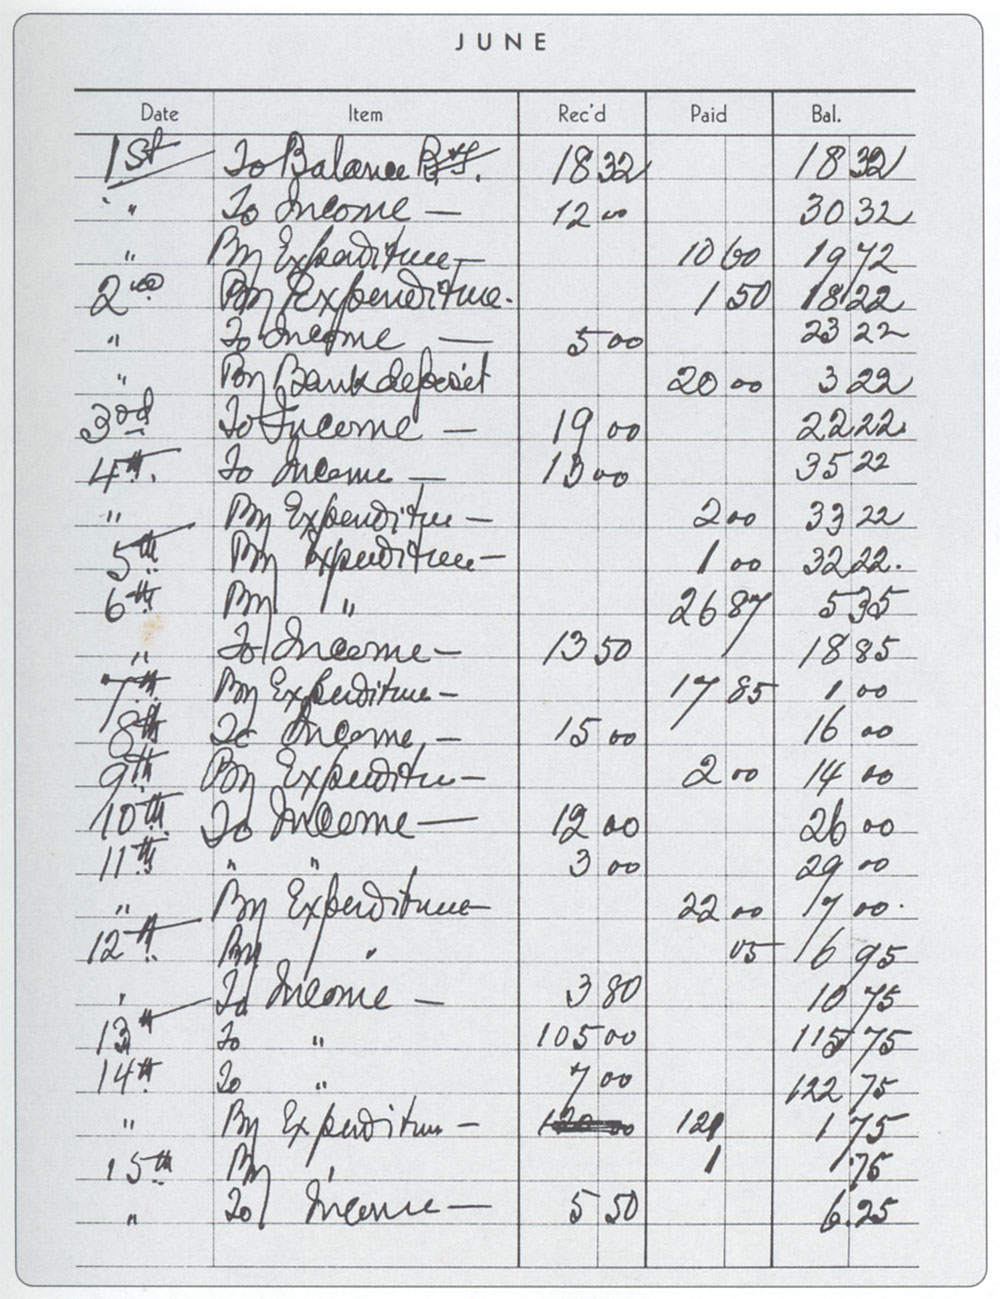 JUNE
Date Item Rec'd Paid Bal.
1st To Balance B/f. 18 32 18 32
" To Income — 12 00 30 32
" By Expenditure — 10 60 19 72
2nd By Expenditure. 1 50 18 22
" To Income — 5 00 23 22
" By Bank deposit 20 00 3 22
3rd To Income — 19 00 22 22.
4th. To Income — 13 00 35 22
" By Expenditure — 2 00 33 22
5th By Expenditure — 1 00 32 22.
6th By " 26 87 5 35
" To Income — 13 50 18 85
7th By Expenditure — 17 85 1 00
8th To Income, — 15 00 16 00
9th By Expenditure — 2 00 14 00
10th To Income — 12 00 26 00
11th " " 3 00 29 00
" By Expenditure 22 00 17 00.
12th By " 05 6 95
" To Income — 3 80 10 75
13th To " 105 00 115 75
14th To " 7 00 122 75
" By Expenditure — 121 1 75
15th By " 1 .75
" To Income — 5 50 6.25